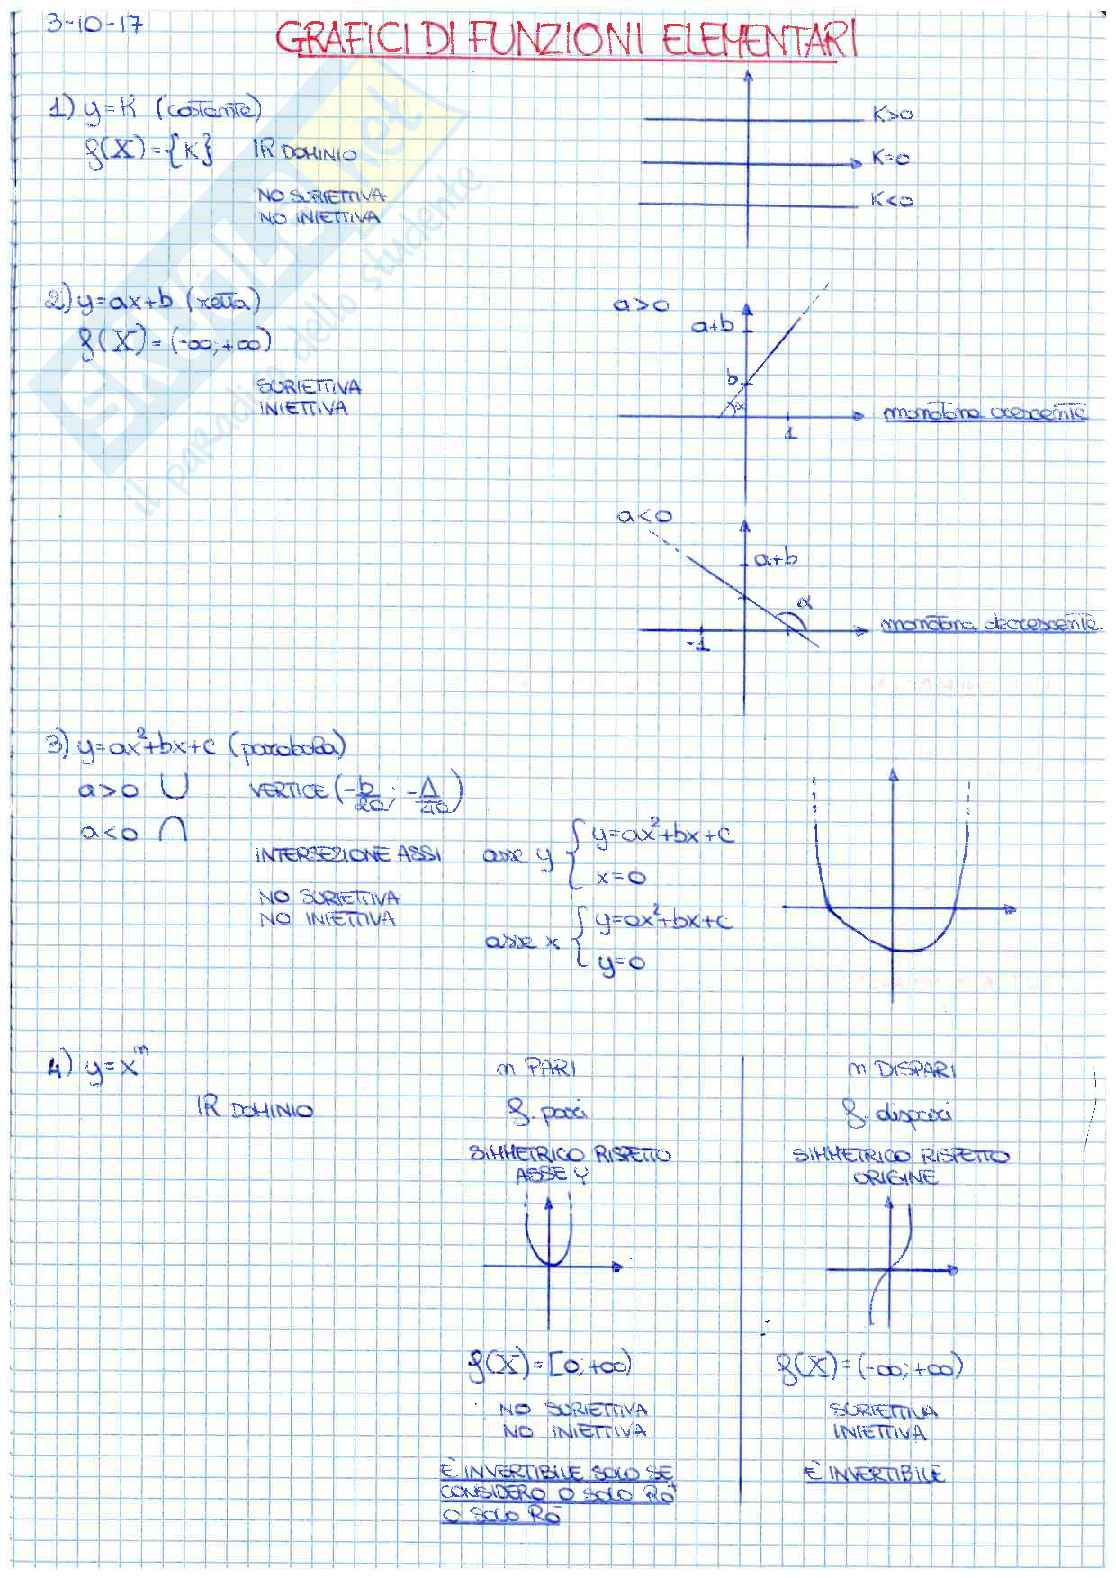 3-10-17
GRAFICI DI FUNZIONI ELEMENTARI
1) y=K (costante)
f(X)={K} IR DOMINIO
NO SURIETTIVA
NO INIETTIVA
K>0
K=0
K<0
2) y=ax+b (retta)
f(X)=(-∞;+∞)
SURIETTIVA
INIETTIVA
a>0
a+b
b
α
1
monotona crescente
a<0
a+b
α
-1
monotona decrescente
3) y=ax²+bx+c (parabola)
a>0 ∪ VERTICE (-b/2a; -Δ/4a)
a<0 ∩
INTERSEZIONE ASSI
asse y { y=ax²+bx+c
x=0
NO SURIETTIVA
NO INIETTIVA
asse x { y=ax²+bx+c
y=0
4) y=xⁿ
IR DOMINIO
n PARI
f. pari
SIMMETRICO RISPETTO
ASSE Y
f(X)=[0;+∞)
NO SURIETTIVA
NO INIETTIVA
È INVERTIBILE SOLO SE
CONSIDERO O SOLO R₀⁺
O SOLO R₀⁻
n DISPARI
f. dispari
SIMMETRICO RISPETTO
ORIGINE
f(X)=(-∞;+∞)
SURIETTIVA
INIETTIVA
È INVERTIBILE
SKUOLA.net
il paradiso dello studente